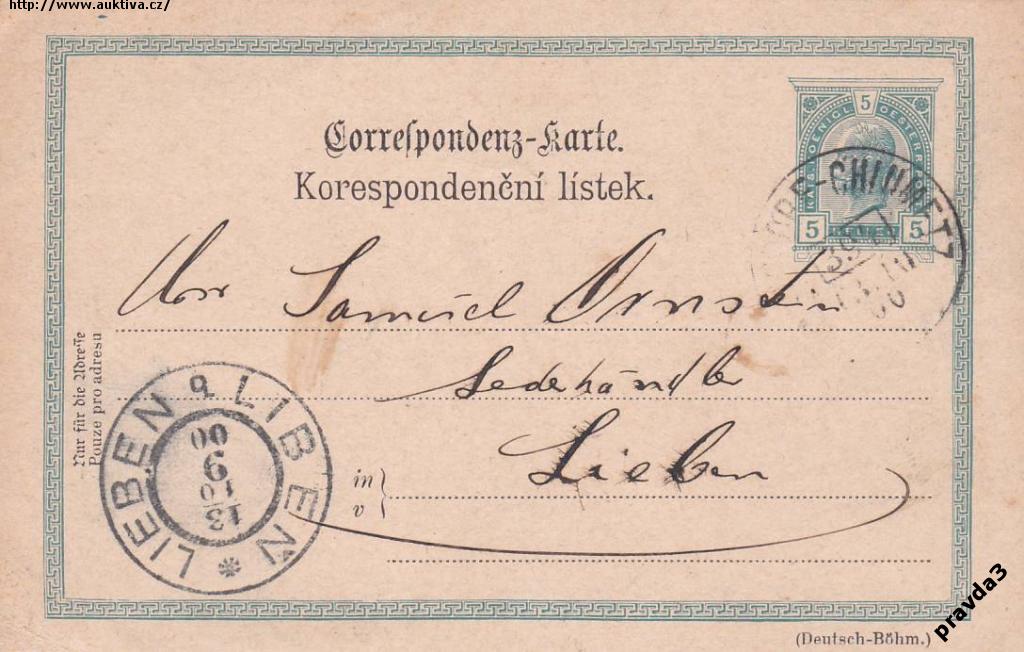 http://www.aukтiva.cz/
Correſpondenz-Karte.
Korespondenční lístek.
5
KAIS. KOENIGL. OESTERR.
5 5
Samuel Ornstein
Lederhändler
Lieben
Nur für die Adreſſe
Pouze pro adresu
in
v
LIEBEN LIBEŇ
13
10
9
00
(Deutsch-Böhm.)
pravda3